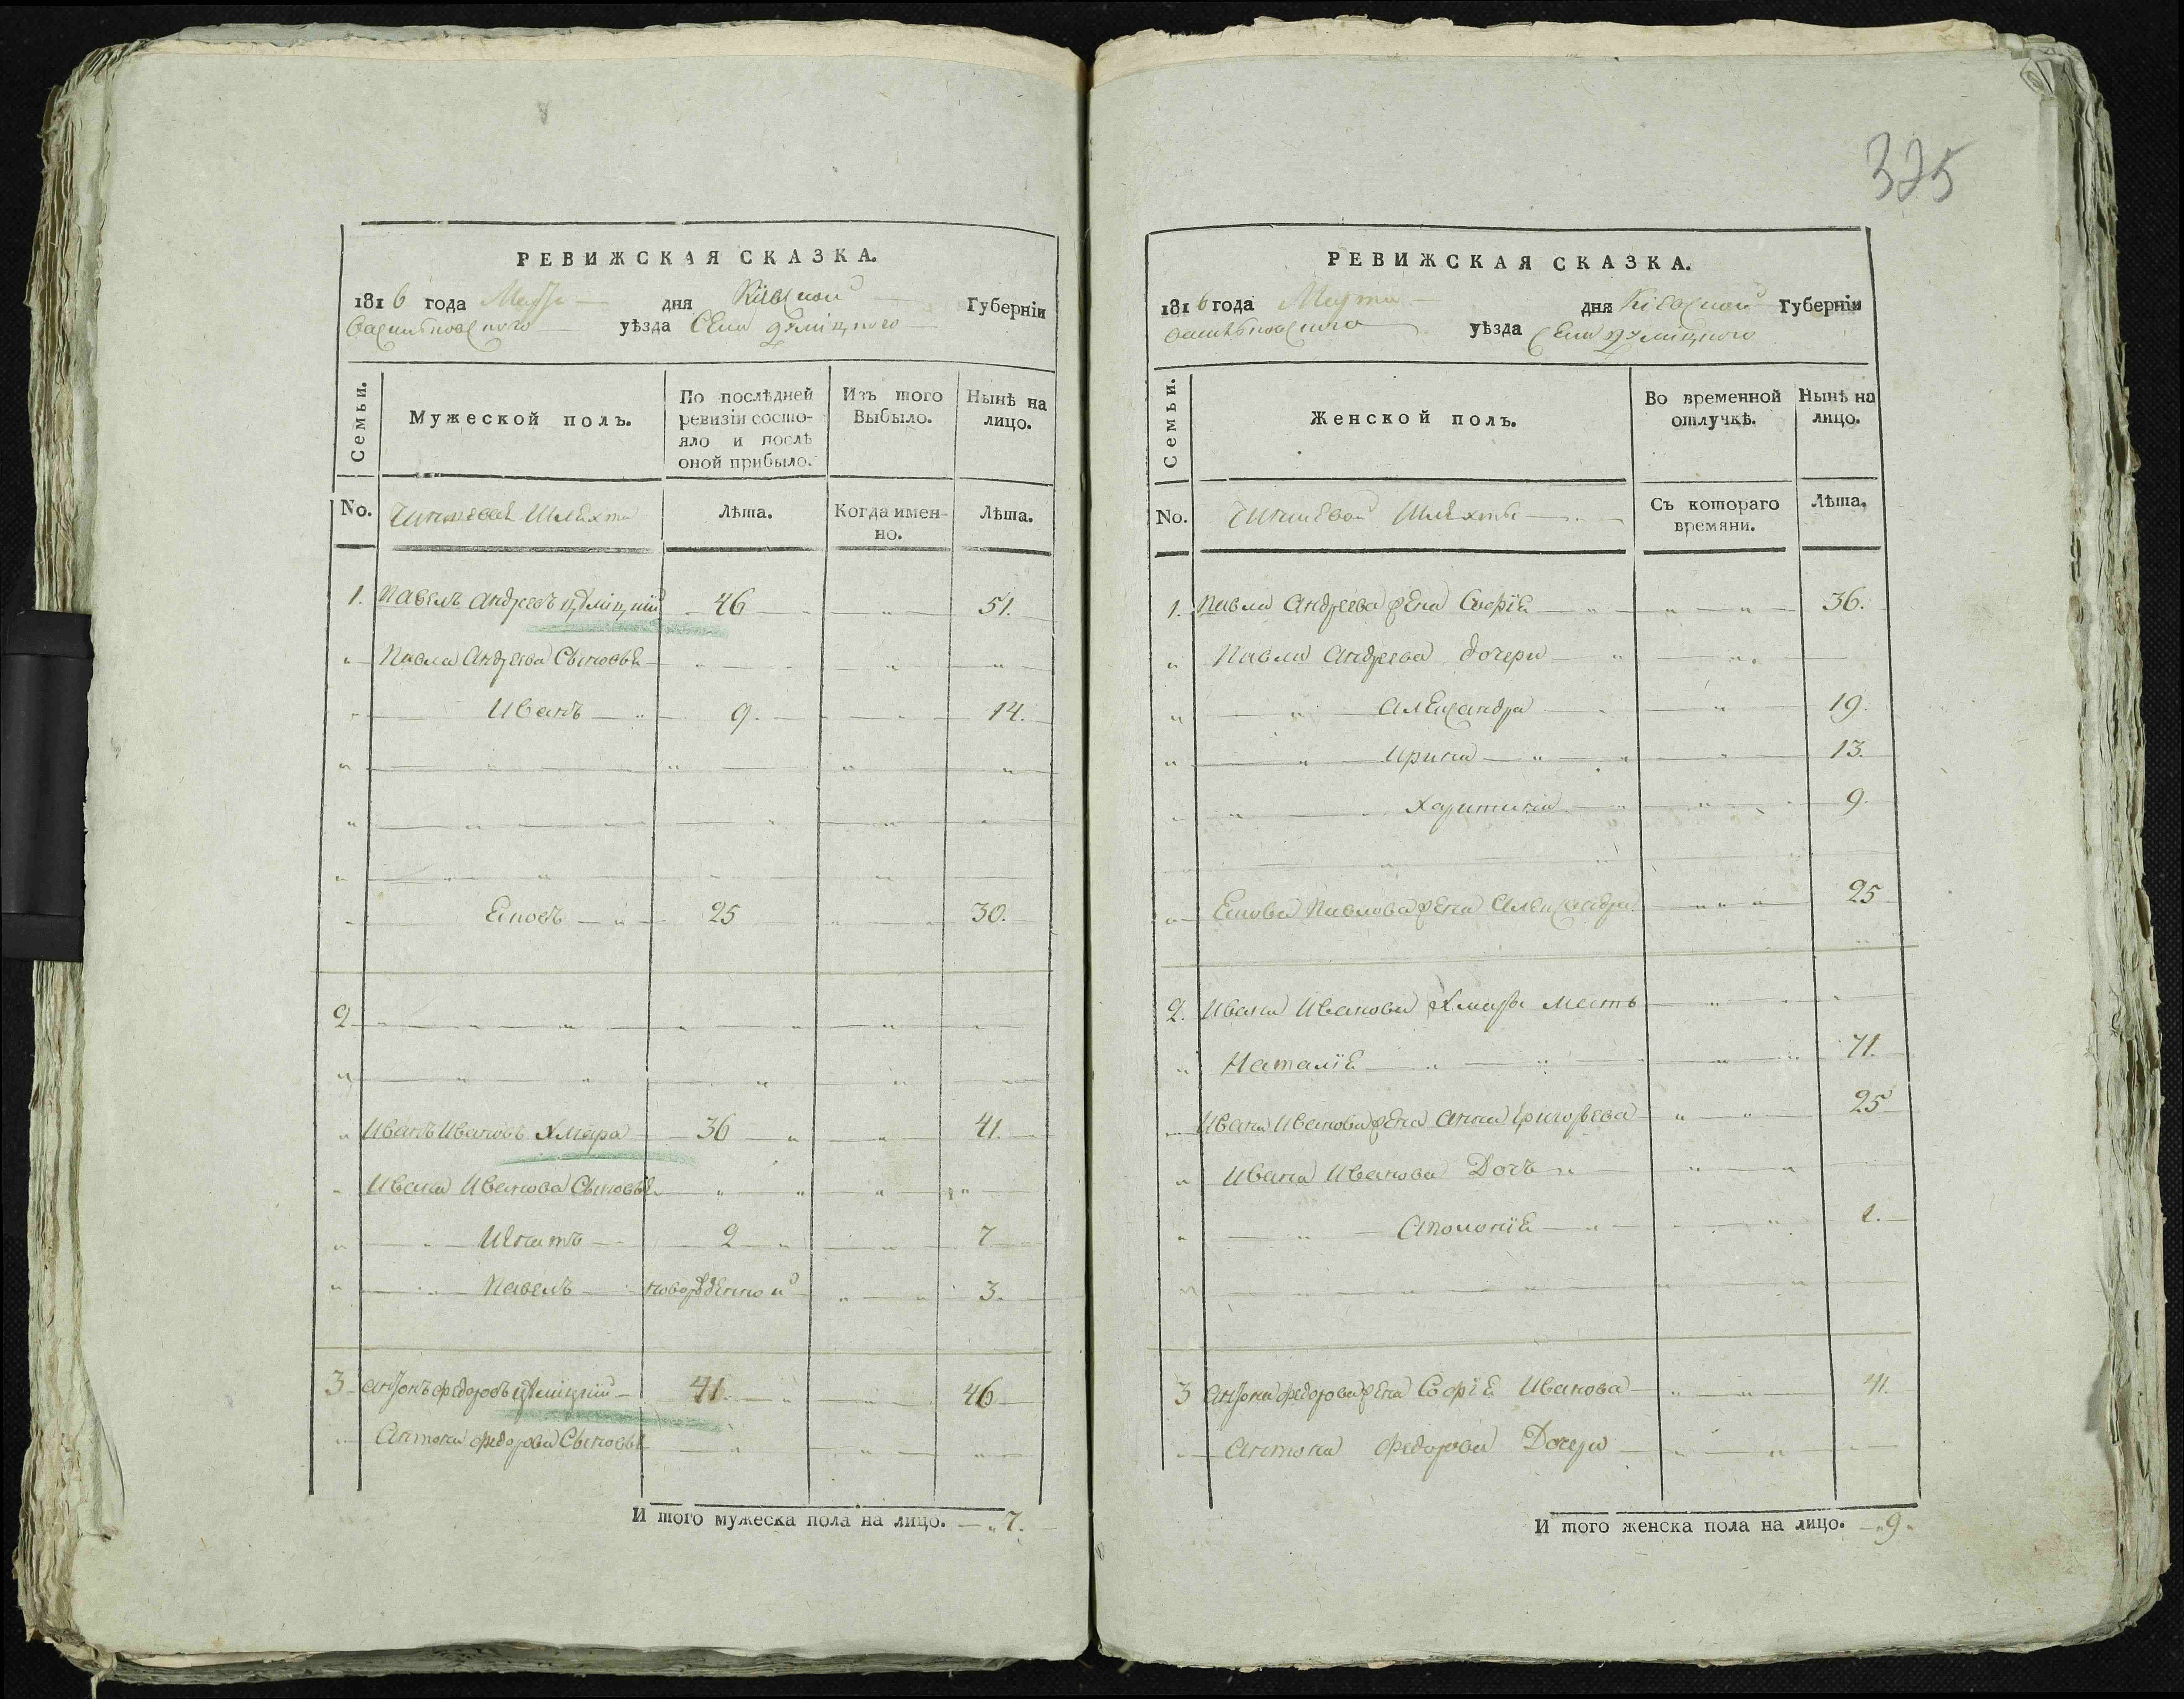 РЕВИЖСКАЯ СКАЗКА.
1816 года Марта дня Кіевской Губерніи
Васильковского уѣзда Села
Семьи.
Мужеской полъ.
По послѣдней ревизіи состояло и послѣ оной прибыло.
Изъ того Выбыло.
Нынѣ на лицо.
No. Чиншевой Шляхты
Лѣта.
Когда именно.
Лѣта.
1. Павелъ Андреевъ 46 51.
Павла Андреева Сыновья
Иванъ 9. 14.
Яковъ 25 30.
2
Иванъ Ивановъ Хмара 36 41.
Ивана Иванова Сыновья
Игнатъ 2 7
Павелъ новорожденной 3.
3 Антонъ Федоровъ 41. 46
Антона Федорова Сыновья
И того мужеска пола на лицо. 7.
325
РЕВИЖСКАЯ СКАЗКА.
1816 года Марта дня Кіевской Губерніи
Васильковского уѣзда Села
Семьи.
Женской полъ.
Во временной отлучкѣ.
Нынѣ на лицо.
No. Чиншевой Шляхты
Съ котораго времяни.
Лѣта.
1. Павла Андреева жена Софія 36.
Павла Андреева дочери
Александра 19.
Ирина 13.
Харитина 9.
Павлова жена Александра 25
2. Ивана Иванова Хмары Мать
Наталія 71.
Ивана Иванова жена Анна Григорьева 25
Ивана Иванова Дочь
Аполонія 1.
3 Антона Федорова жена Софія Иванова 41.
Антона Федорова Дочери
И того женска пола на лицо. 9